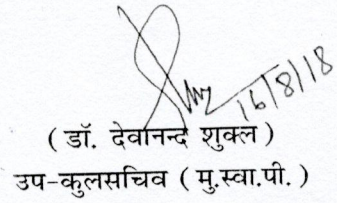 16/8/18
( डॉ. देवानन्द शुक्ल )
उप-कुलसचिव ( मु.स्वा.पी. )